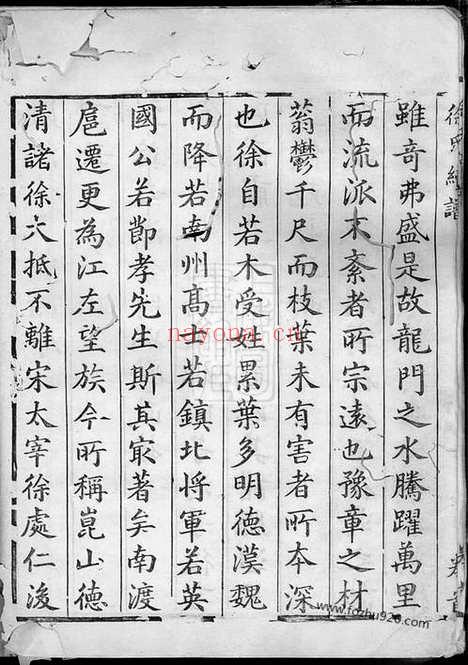 雖奇弗盛是故龍門之水騰躍萬里
而流派不紊者所宗遠也豫章之材
蓊鬱千尺而枝葉未有害者所本深
也徐自若木受姓累葉多明德漢魏
而降若南州高士若鎮北将軍若英
國公若節孝先生斯其㝡著矣南渡
扈遷更為江左望族今所稱崑山德
清諸徐大抵不離宋太宰徐處仁後
nayona.cn
www.fozhu920.com